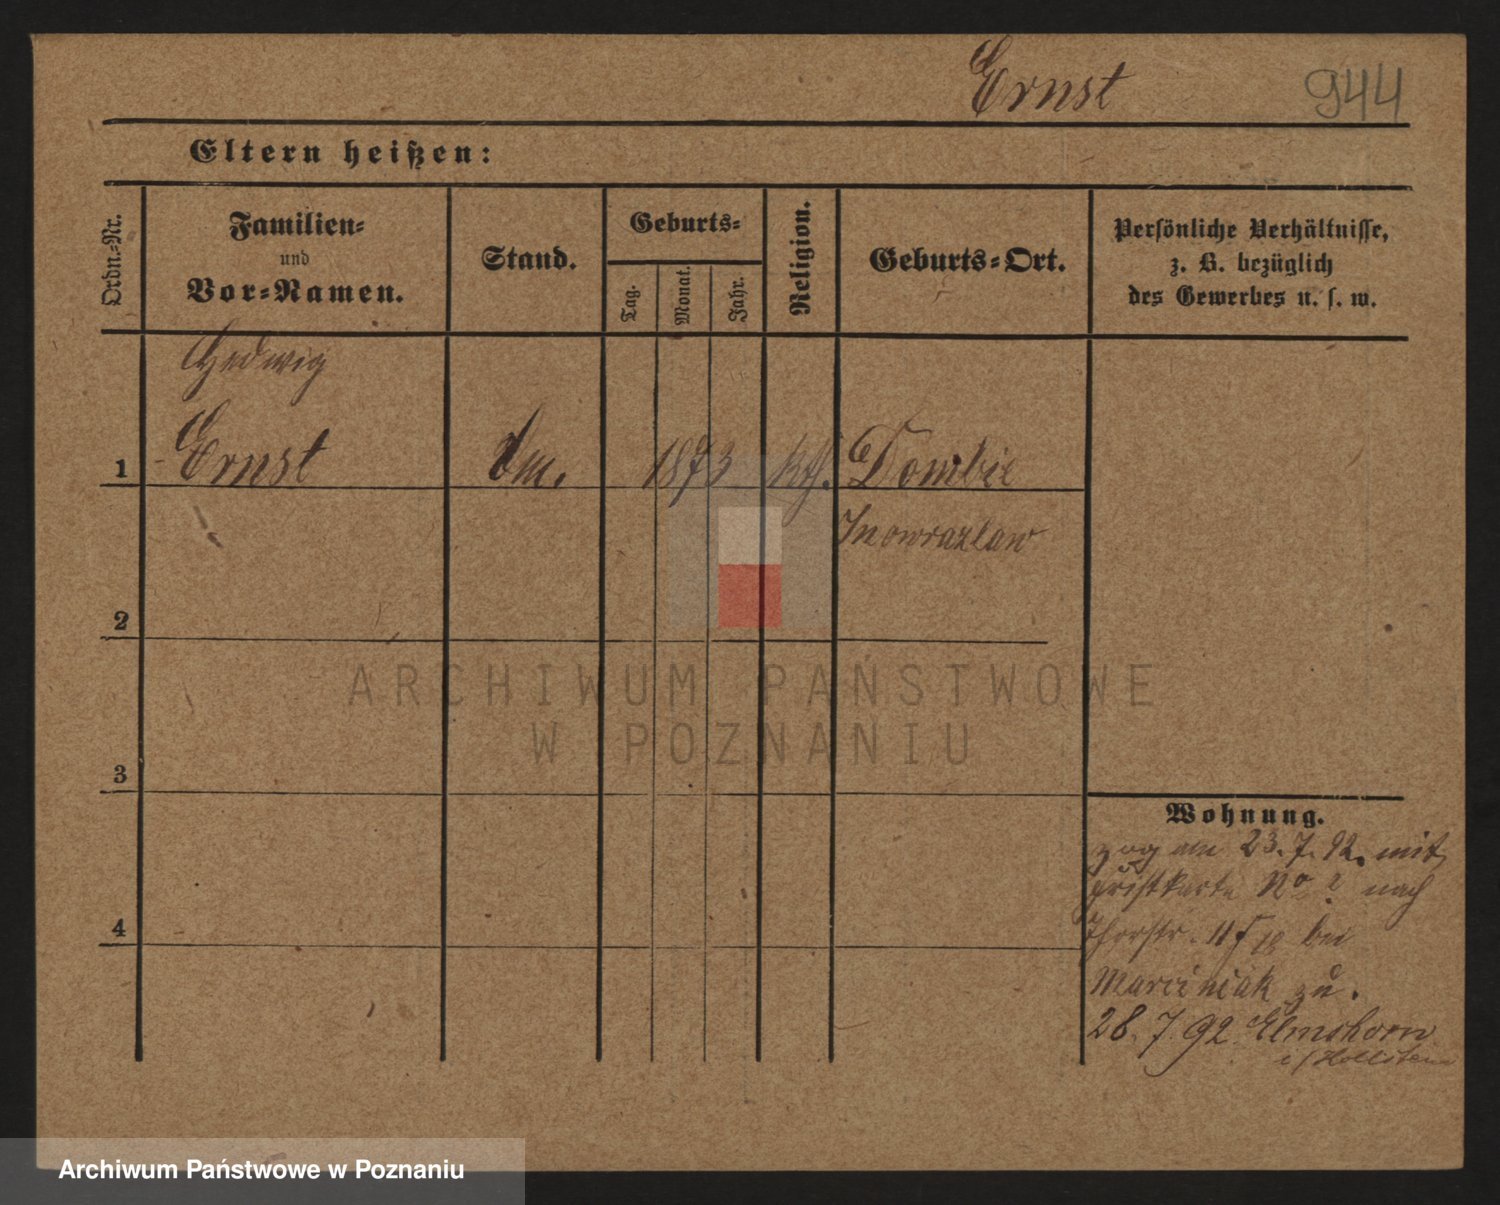 Ernst 944
Eltern heißen:
Ordn.=Nr.
Familien=
und
Vor=Namen.
Stand.
Geburts=
Tag.
Monat.
Jahr.
Religion.
Geburts=Ort.
Persönliche Verhältnisse,
z. B. bezüglich
des Gewerbes u. s. w.
Hedwig
1 Ernst 1873 kth. Dombie
Inowrazlaw
2
ARCHIWUM PAŃSTWOWE
W POZNANIU
3
Wohnung.
zog am 23. 7. 92. mit
No ? nach
4
Thorstr. bei
Marciniak zu.
28. 7. 92. Elmshorn
i/Hollstein
Archiwum Państwowe w Poznaniu